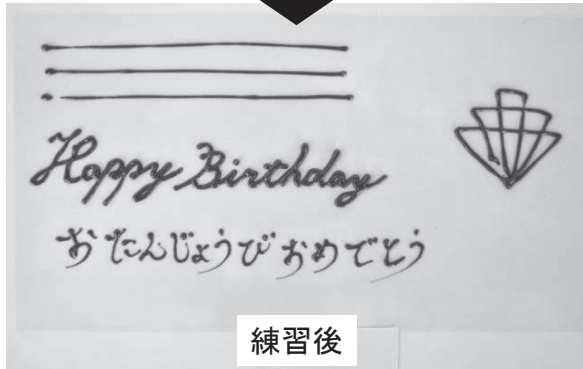 Happy Birthday
おたんじょうびおめでとう
練習後